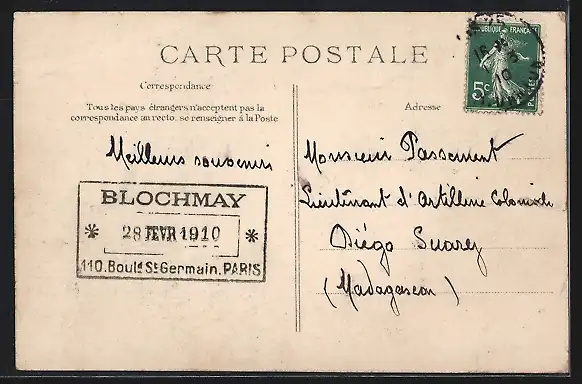 CARTE POSTALE
Correspondance
Tous les pays étrangers n'acceptent pas la
correspondance au recto. se renseigner à la Poste
Meilleurs souvenirs
BLOCHMAY
* 28 FEVR 1910 *
110. Boulᵈ Sᵗ Germain. PARIS
Adresse
Monsieur Passement
Lieutenant d'Artillerie Coloniale
Diégo Suarez
(Madagascar)
RÉPUBLIQUE FRANÇAISE
5c
10